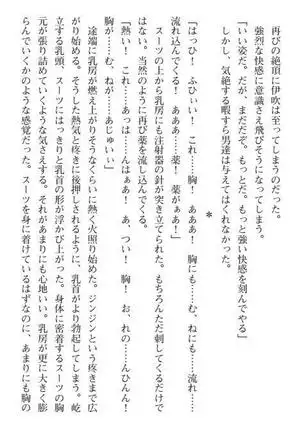 再びの絶頂に伊吹は至ってしまうのだった。
強烈な快感に意識さえ飛びそうになってしまう。
「いい姿だ。だが、まだだぞ。もっとだ。もっと強い快感を刻んでやる」
しかし、気絶する暇すら男達は与えてはくれなかった。
＊
「はっひ！　ふひぃい！　これ……胸！　あああ！　胸にも……む、ねにも……流れ！
流れ込んでくる！　あああ……薬！　薬がぁあ！」
スーツの上から乳房にも注射器の針が突き立てられた。もちろんただ刺してくるだけで
はない。当然のように再び薬を流し込んでくる。
「熱い！　これ……あっつ……はんはぁぁ！　あ、つい！　胸！　お、れの……んひんん！
胸が……む、ねが……あじゅいぃ」
途端に乳房が燃え上がりそうなくらいに熱く火照り始めた。ジンジンという疼きまで広
がり始める。そうした熱気と疼きに後押しされるように、乳首がより勃起してしまう。屹
立する乳頭、スーツにはっきりと乳首の形が浮かび上がった。身体に密着するスーツの胸
元が張り詰めていくような気さえする。それがあまりにも心地いい。乳房が更に大きく膨
らんでいくかのような感覚だった。スーツを身に着けているはずなのに、あまりにも胸の